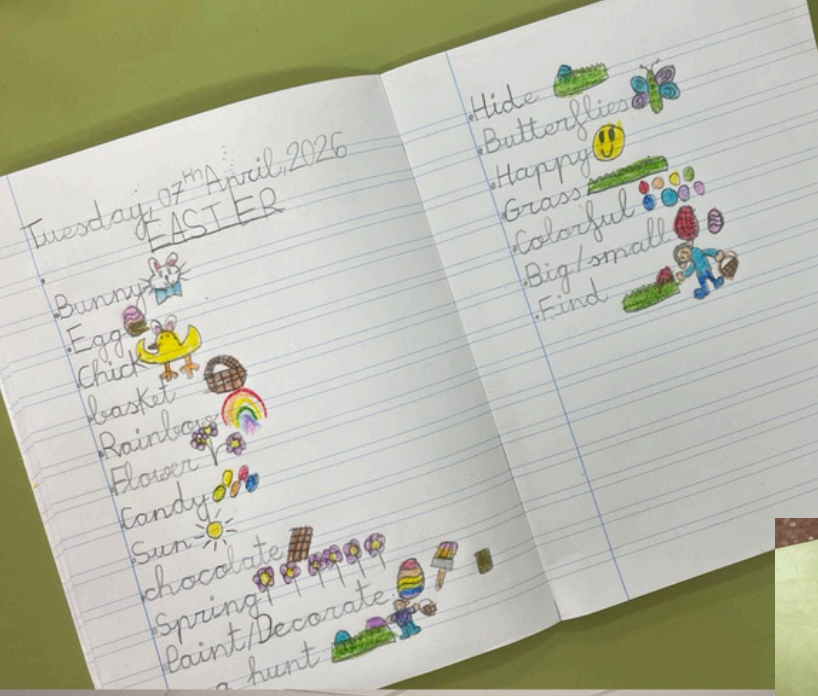 Tuesday, 07th April, 2026
EASTER
Bunny
Egg
Chick
basket
Rainbow
Flower
Candy
Sun
chocolate
Spring
Paint/Decorate
hunt
Hide
Butterflies
Happy
Grass
Colorful
Big/small
Find